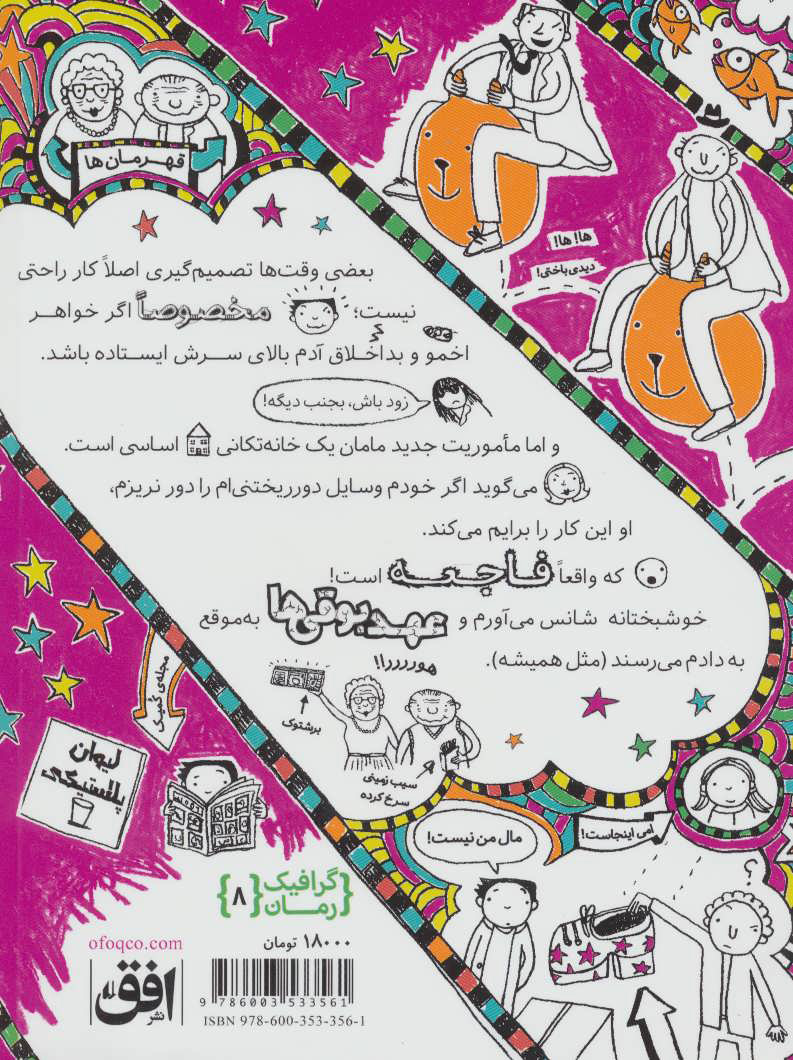 قهرمان‌ها
ها! ها!
دیدی باختی!
بعضی وقت‌ها تصمیم‌گیری اصلاً کار راحتی
نیست؛ مخصوصاً اگر خواهر
اخمو و بداخلاق آدم بالای سرش ایستاده باشد.
زود باش، بجنب دیگه!
و اما مأموریت جدید مامان یک خانه‌تکانی اساسی است.
می‌گوید اگر خودم وسایل دورریختنی‌ام را دور نریزم،
او این کار را برایم می‌کند.
که واقعاً فاجعه است!
خوشبختانه شانس می‌آورم و عهدبوقی‌ها به‌موقع
به دادم می‌رسند (مثل همیشه).
هورررررا!!
برشتوک
سیب‌زمینی
سرخ کرده
مجله‌ی کمیک
لیوان
پلاستیکی
اِمی اینجاست!
مال من نیست!
؟
گرافیک
رمان
{۸}
ofoqco.com
۱۸۰۰۰ تومان
نشر افق
9 786003 533561
ISBN 978-600-353-356-1